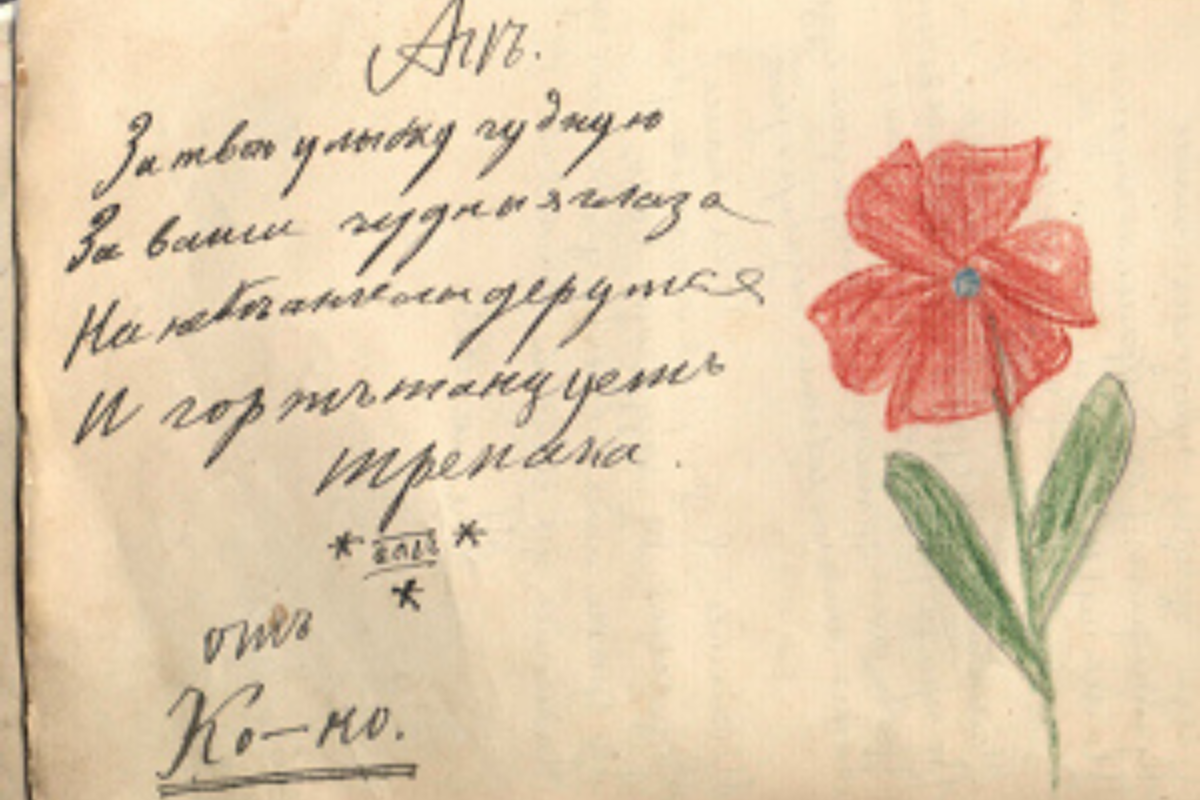 За твою улыбку чудную
За ваши чудныя глаза
На небѣ ангелы дерутся
И чортъ танцуетъ
трепака.
отъ
Ко-но.